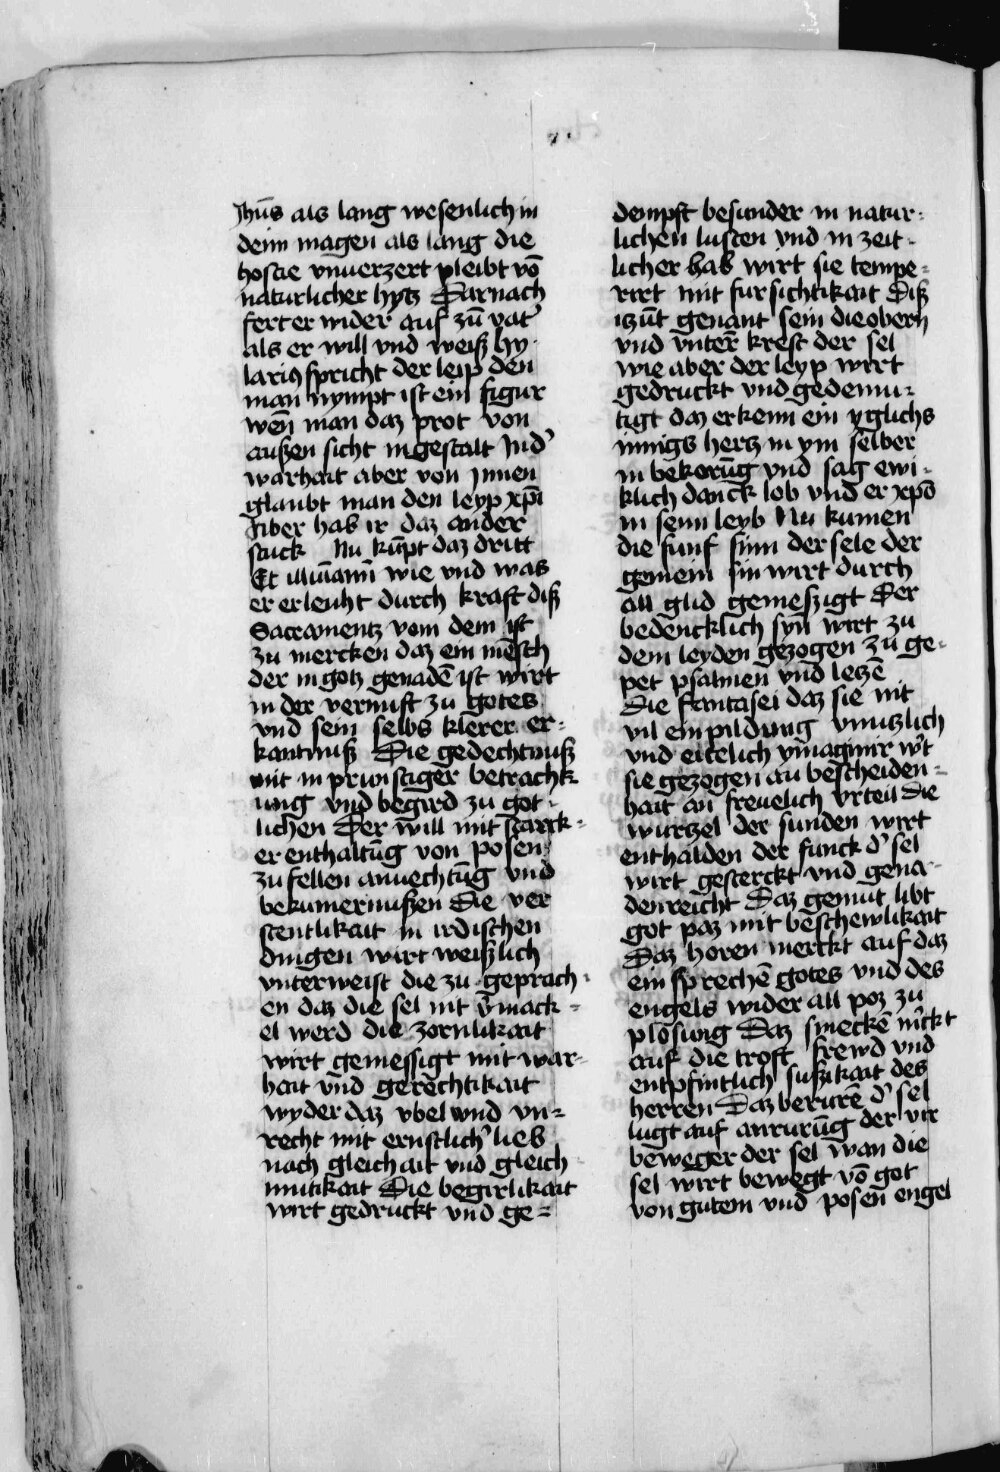 Jhūs als lang wesenlich in
deim magen als lang die
hostie vnuerzert pleibt vō
naturlicher hytz Darnach
fert er wider auf zū vat̕
als er will vnd weiß hy-
larius spricht der leip den
man nympt ist ein figur
wen̄ man daz prot von
außen sicht in gestalt Jnd̕
warhait aber von Jnnen
glaubt man den leyp xp̄i
Aber hab ir daz ander
stuck Nu kūpt daz dritt
Et illuīamī wie vnd was
er erleuht durch kraft diß
Sacramentz vom dem ist
zu mercken daz ein mēsch
der in gotz genadē ist wirt
in der vernuft zu gotes
vnd sein selbs klerer er=
kantnuß Die gedechtnuß
mit inprunstiger betrachk
ung vnd begird zu got-
lichen Der will mit starck=
er enthaltūg von posen
zu fellen anuechtūg vnd
bekumernußen Die ver
stentlikait in irdischen
dingen wirt weißlich
vnterweist die zu geprach-
en daz die sel nit v̄mack=
el werd die zornlikait
wirt gemessigt mit war-
hait vnd gerechtikait
wyder daz vbel vnd vn=
recht mit ernstlich̕ lieb
nach gleichait vnd gleich
mutikait Die begirlikait
wirt gedruckt vnd ge=
dempft besunder in natur=
lichen lusten vnd in zeit-
licher hab wirt sie tempe=
rirt mit fursichtikait Diß
itzūt genant sein die obern
vnd vnter̄ kreft der sel
wie aber der leyp wirt
gedruckt vnd gedemu=
tigt daz erkenn ein yglichs
innigs hertz in ym selber
in bekorūg vnd sag ewi-
klich danck lob vnd er xp̄o
in seim leyb Nu kumen
die funf sinn der sele der
gemein sin wirt durch
all glid gemeßigt Der
bedencklich syn̄ wirt zu
dem leyden gezogen zu ge-
pet psalmen vnd leßē
Die fantasei daz sie nit
vil einpildung vnutzlich
vnd eitelich ymaginir w̕t
sie gezogen an bescheiden=
hait an freuelich vrteil die
wurtzel der sunden wirt
enthalden der funck d̕ sel
wirt gesterckt vnd gena-
denreicht Daz gemut libt
got paz mit beschewlikait
Daz horen merckt auf daz
ein sprechē gotes vnd des
engels wider all poz zu
plosung Daz smeckē m̕ckt
auf die trost frewd vnd
entpfintlich sußikait des
herren Daz berurē d̕ sel
lugt auf anrurūg der vir
beweger der sel wan die
sel wirt bewegt vō got
von gutem vnd posen engel